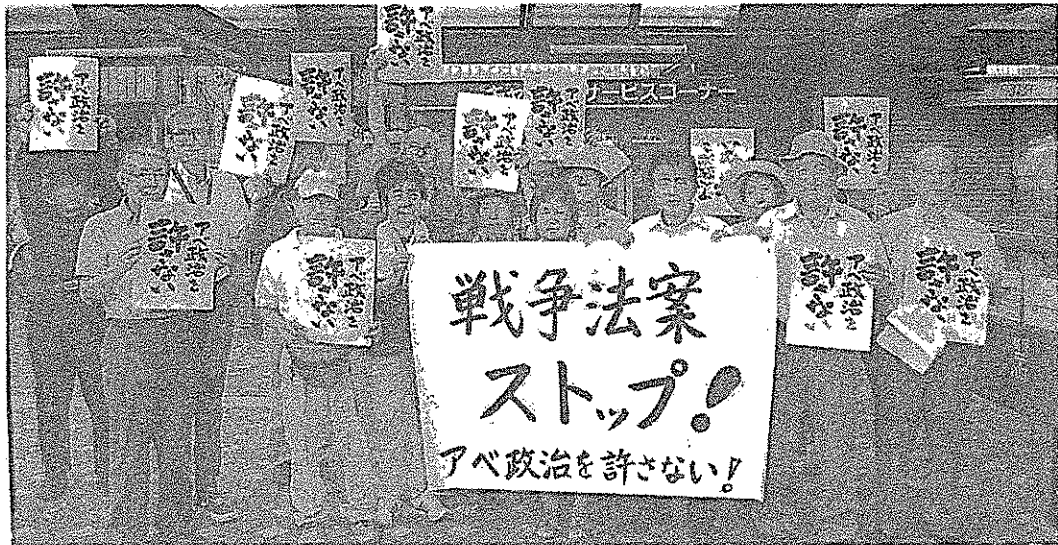 サービスコーナー
アベ政治を
許さない
アベ政治を
許さない
アベ政治を
許さない
アベ政治を
許さない
アベ政治を
許さない
アベ政治を
許さない
アベ政治を
許さない
アベ政治を
許さない
アベ政治を
許さない
アベ政治を
許さない
アベ政治を
許さない
戦争法案
ストップ!
アベ政治を許さない!